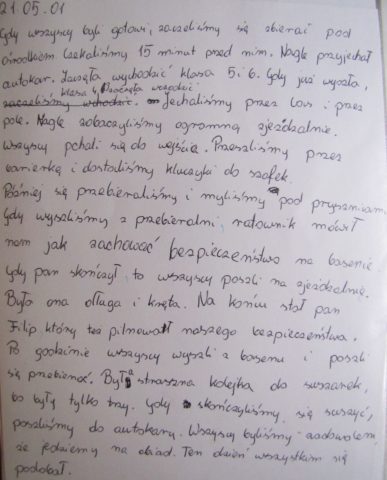 21.05.01
Gdy wszyscy byli gotowi, zaczeliśmy się zbierać pod
ośrodkiem. Czekaliśmy 15 minut przed nim. Nagle przyjechał
autokar. Zaczęła wychodzić klasa 5 i 6. Gdy już wyszła,
klasa 4, Poczęta wchodzić.
zaczeliśmy wchodzić. Jechaliśmy przez las i przez
pole. Nagle zobaczyliśmy ogromną zjeżdzalnie.
Wszyscy pchali się do wejścia. Przeszliśmy przez
barierkę i dostaliśmy kluczyki do szafek.
Później się przebieraliśmy i myliśmy pod prysznicami
Gdy wyszliśmy z przebieralni, ratownik mówił
nam jak zachować bezpieczeństwo na basenie
Gdy pan skończył, to wszyscy poszli na zjeżdzalnię.
Była ona długa i kręta. Na końcu stał pan
Filip, który też pilnował naszego bezpieczeństwa.
Po godzinie wszyscy wyszli z basenu i poszli
się przebierać. Była straszna kolejka do suszarek,
bo były tylko trzy. Gdy skończyliśmy się suszyć,
poszliśmy do autokaru. Wszyscy byliśmy zadowoleni,
że jedziemy na obiad. Ten dzień wszystkim się
podobał.